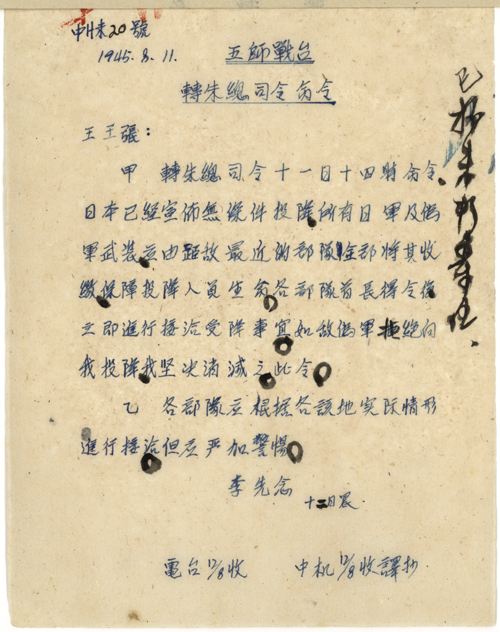 20號
1945.8.11.
五師戰台
轉朱總司令命令
王王張：
甲 轉朱總司令十一日十四時命令
日本已經宣佈無條件投降所有日軍及偽
軍武裝應由距敵最近的部隊全部將其收
繳保障投降人員生命各部隊首長得令後
立即進行接洽受降事宜如敵偽軍拒絕向
我投降我坚决消滅之此令
乙 各部隊应根据各該地实际情形
進行接洽但应严加警惕
李先念
十二日晨.
電台12/8收 中机12/8收譯抄.